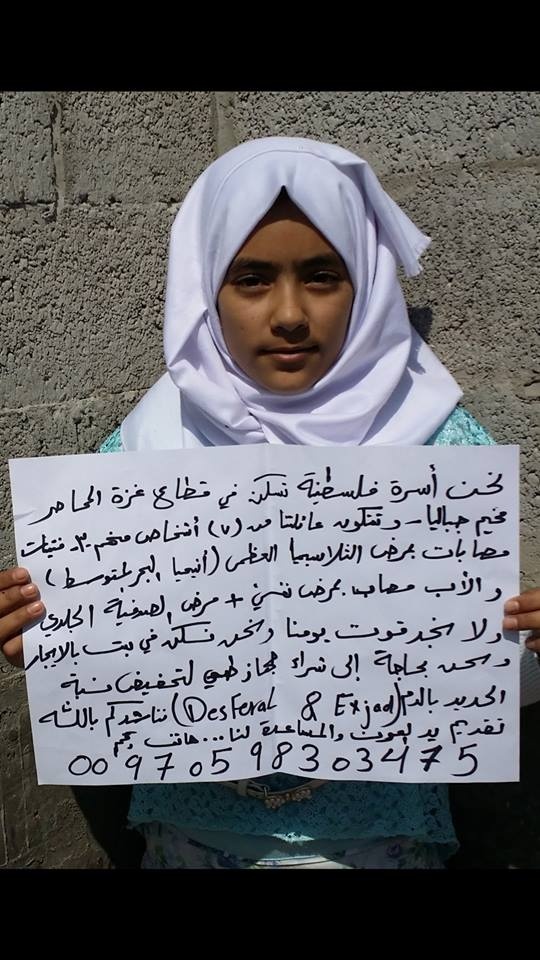 نحن أسرة فلسطنية نسكن في قطاع غزة المحاصر
مخيم جباليا - وتتكون عائلتنا من (٧) أشخاص منهم ٣ فتيات
مصابات بمرض الثلاسيميا العظمى (أنيميا البحر المتوسط)
والأب مصاب بمرض نفسي + مرض الصدفية الجلدي
ولا نجد قوت يومنا ونحن نسكن في بيت بالايجار
ونحن بحاجة إلى شراء جهاز طبي لتخفيض نسبة
الحديد بالدم (Desferal & Exjad) نناشدكم بالله
تقديم يد العون والمساعدة لنا... هاتف رقم
00970598303475